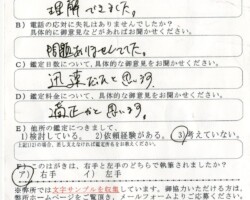 理解できました。
B) 電話の応対に失礼はありませんでしたか？
具体的に御意見などがあればお聞かせください。
問題ありませんでした。
C) 鑑定日数について、具体的な御意見をお聞かせください。
迅速だと思います
D) 鑑定料金について、具体的な御意見をお聞かせください。
適正かと思います。
E) 他所の鑑定につきまして。
1)検討している。 2)依頼経験がある。 3)考えていない。
F) このはがきは、右手と左手のどちらで執筆されましたか？
ア) 右手 イ) 左手
※弊所では文字サンプルを収集しています。御協力いただける方は、
弊所ホームページをご覧頂き、メールフォームよりご応募ください。